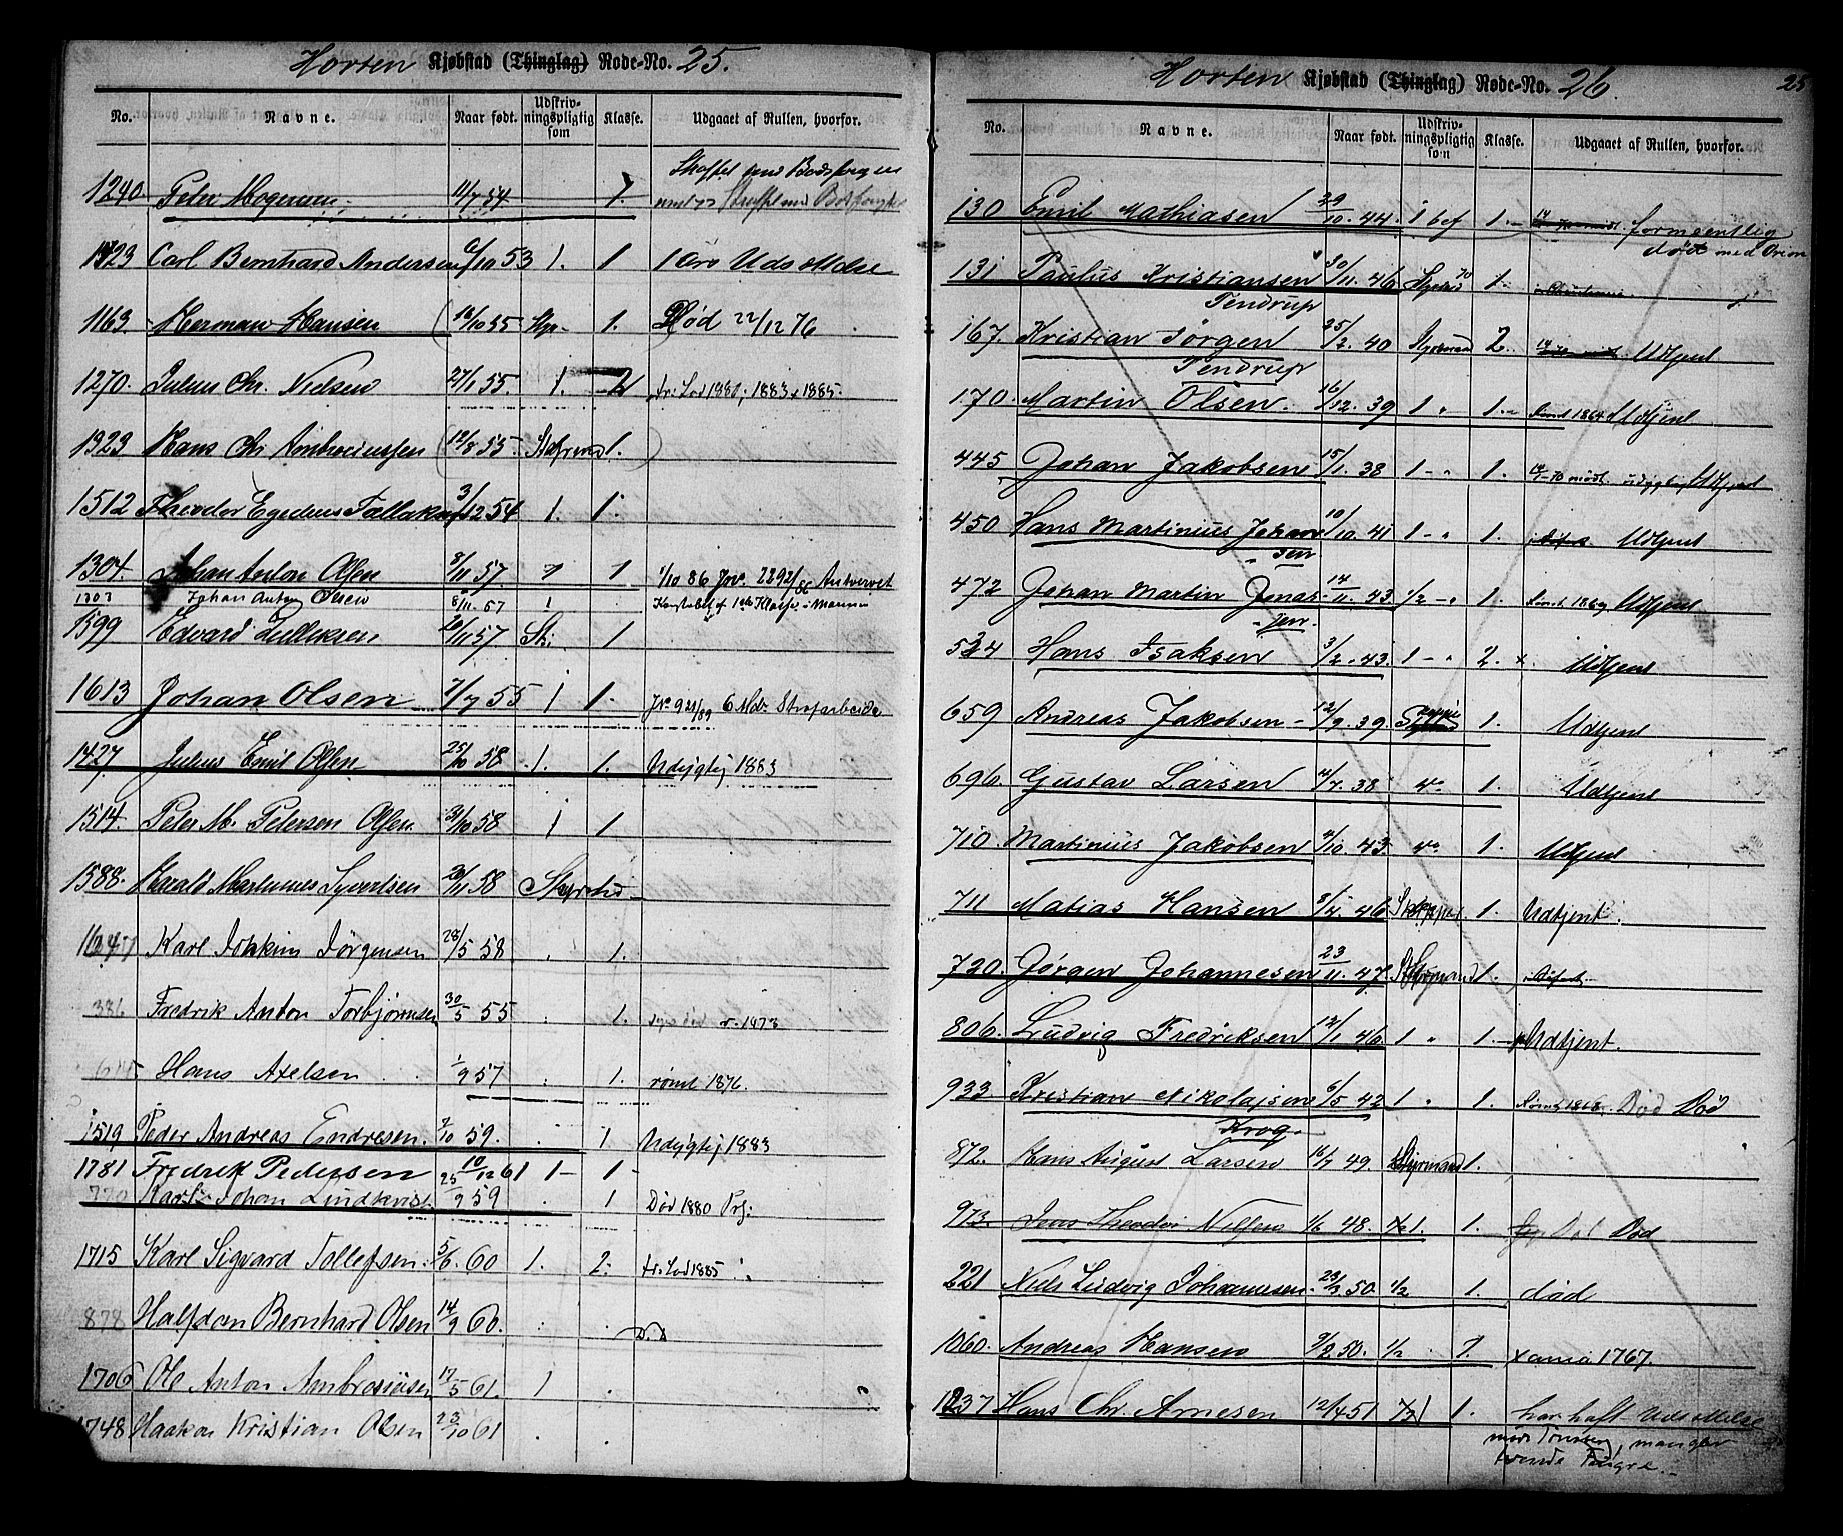 Horten Kjøbstad (Thinglag) Rode-No. 25.
No. Navne. Naar født. Udskriv-ningspligtig som Klasse. Udgaaet af Rullen, hvorfor.
1240. Peter Mogensen 11/7 54 1.
1323 Carl Bernhard Andersen 6/10 53 1. 1 1 Udsættelse
1163 Herman Hansen 16/10 55 Styr. 1. Død 22/12 76
1270. Julius Chr. Nielsen 27/1 55. 1. 2 fr. Lod 1881, 1883 & 1885.
1323 Hans Chr Ambrociussen 12/8 55. 1.
1512 Theodor Egedius Tollaksen 3/12 54 1. 1.
1304. Johan Anton Olsen 8/11 57 1 1 1/10 86 Jno. 2292/86
1303 Johan Anton Olsen 8/11. 57 1 Konstabel af 1ste Klasse i Marinen
1599 Edvard 20/11 57 St. 1
1613 Johan Olsen 7/7 55 1 1. Jno 921/89 6 Mdr. Strafarbeide
1427 Julius Emil Olsen 25/10 58 1. 1. Udygtig 1883
1514. Peter M. Petersen Olsen 31/10 58 1 1
1588. Harald Martinius Syvertsen 20/11 58
1647 Karl Joakim Jørgensen 28/5 58 1.
386 Fredrik Anton Torbjørnsen 30/5 55 1. 1873
Hans Axelsen 1/9 57 1. rømt 1876.
1519 Peder Andreas Endresen. 7/10 59. 1 Udygtig 1883
1781 Fredrik Pedersen 10/12 61 1 1
770 Karl Johan Lindkvist 25/9 59 1 Død 1880
1715 Karl Sigvard Tollefsen. 5/6. 60 1. 2. fr. Lod 1885
878 Halfdan Bernhard Olsen 14/9 60.
1706 Ole Anton Ambrosiusen 17/5 61. 1
1748 Haakon Kristian Olsen 23/10 61
Horten Kjøbstad (Thinglag) Rode-No. 26. 25
No. Navne. Naar født. Udskriv-ningspligtig som Klasse. Udgaaet af Rullen, hvorfor.
130 Emil Mathiasen 29/10. 44. 1 bef 1. formentlig
dødt med Orion
131 Paulus Kristiansen 30/11. 46 1.
Tendrup
167. Kristian Jørgen 25/2. 40 Styrmand 2. Udtjent
Tendrup
170. Martin Olsen. 16/12. 39 1 " 1. Rømt 1864 Udtjent
445 Johan Jakobsen 15/1. 38 1 " 1. Udtjent
450 Hans Martinius Johan- 10/10. 41 1 " 1. Udtjent
sen
472 Johan Martin Jonas- 14/11. 43 1/2 " 1. Rømt 1869 Udtjent
sen.
534 Hans Isaksen 3/2. 43. 1 " 2. x Udtjent
659 Andreas Jakobsen 12/9. 39. 1. Udtjent
696. Gustav Larsen 4/7. 38 do 1. Udtjent
710. Martinius Jakobsen 4/10. 43 do 1. Udtjent
711 Matias Hansen 3/4. 46 1. Udtjent.
720. Jørgen Johannesen 23/11. 47. Styrmand 1.
806. Ludvig Fredriksen 12/1. 46 1 " 1. Udtjent.
933. Kristian Nikolaisen 6/5 42 1 " 1. Rømt 1868. Død Død
Krog
872. Hans August Larsen 16/7 49 Styrmand 1.
973. Jens Theodor Nilsen 1/6 48. 1/2 1. 1. Død
221 Niels Ludvig Johannesen. 23/3 50. 1/2 1. død
1060. Andreas Hansen 9/2 50. 1/2 1. 1767.
1237 Hans Chr. Arnesen 12/4 51 1/2 1 1. har haft Udsættelse
mangler
tvende Fingre.